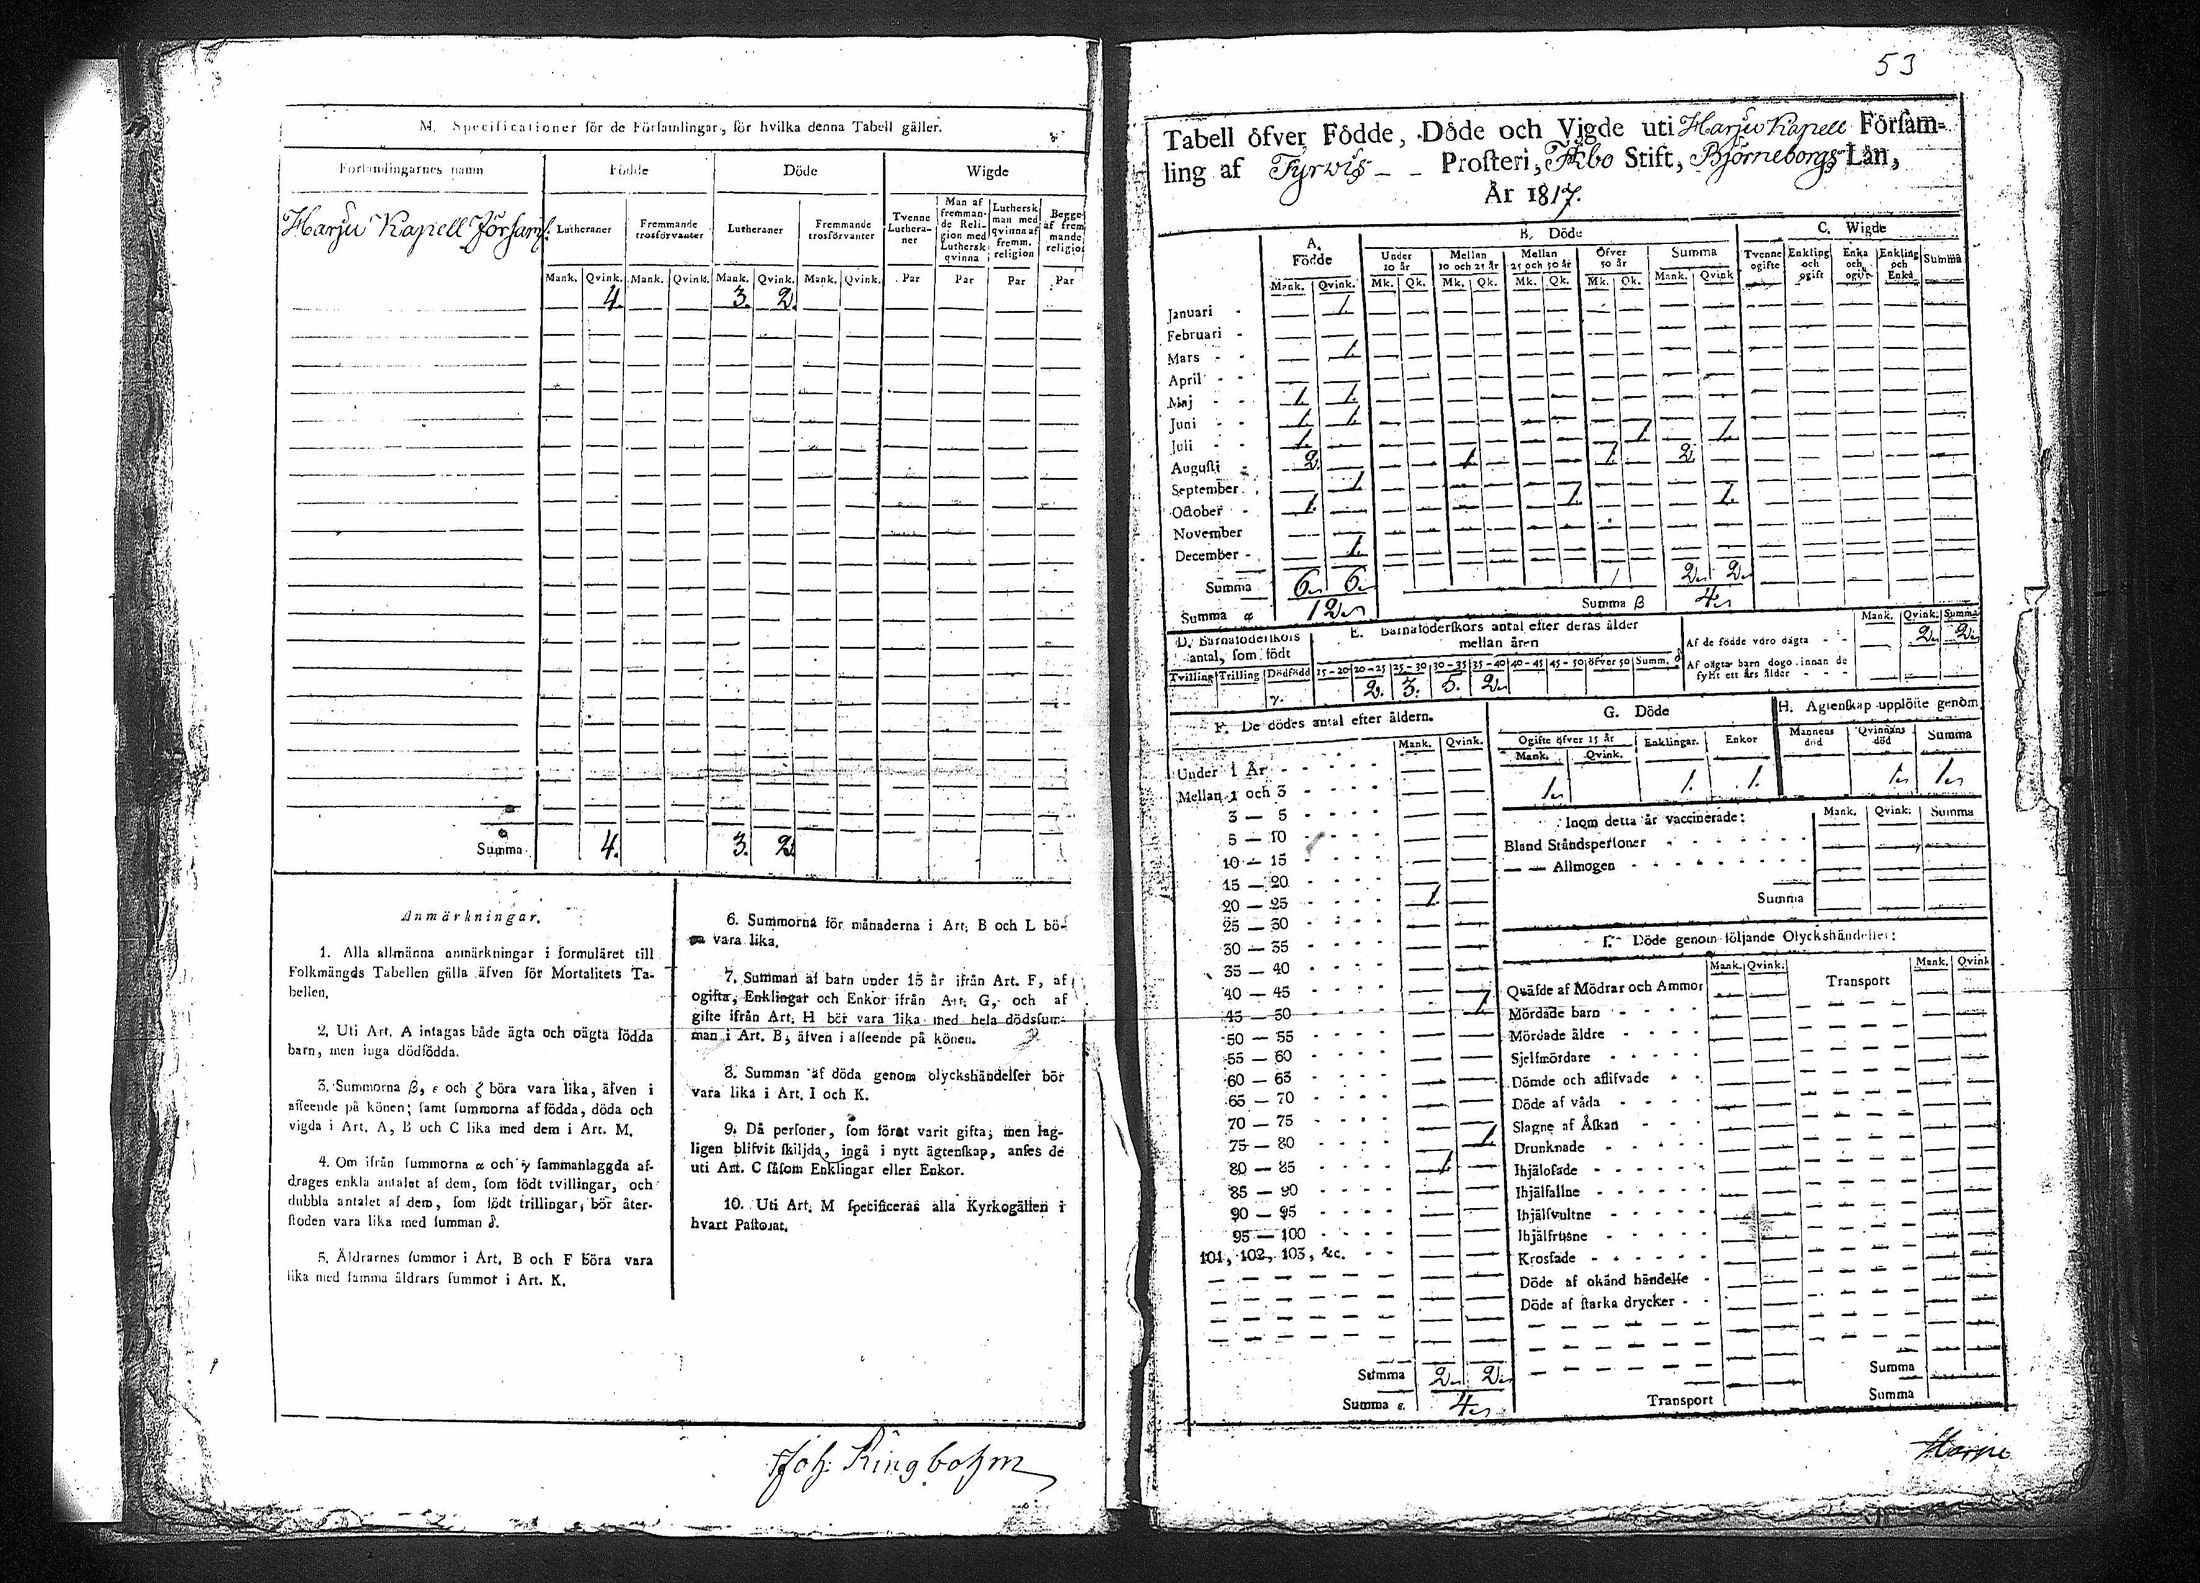 M. Specificationer för de Församlingar, för hvilka denna Tabell gäller.
Församlingarnes namn Födde Döde Wigde
Harju Kapell Församl.
Lutheraner Fremmande trosförvanter Lutheraner Fremmande trosförvanter Tvenne Lutheraner Man af fremmande Religion med Luthersk qvinna Luthersk man med qvinna af fremm. religion Begge af fremmande religion
Mank. Qvink. Mank. Qvink. Mank. Qvink. Mank. Qvink. Par Par Par Par
4. 3. 2.
Summa 4. 3. 2.
Anmärkningar.
1. Alla allmänna anmärkningar i formuläret till
Folkmängds Tabellen gälla äfven för Mortalitets Ta-
bellen.
2. Uti Art. A intagas både ägta och oägta födda
barn, men inga dödfödda.
3. Summorna β, ε och ζ böra vara lika, äfven i
afseende på könen; samt summorna af födda, döda och
vigda i Art. A, B och C lika med dem i Art. M.
4. Om ifrån summorna α och γ sammanlaggda af-
drages enkla antalet af dem, som födt tvillingar, och
dubbla antalet af dem, som födt trillingar, bör åter-
stoden vara lika med summan δ.
5. Äldrarnes summor i Art. B och F böra vara
lika med samma äldrars summor i Art. K.
6. Summorna för månaderna i Art. B och L bö-
ra vara lika.
7. Summan af barn under 15 år ifrån Art. F, af
ogifta, Enklingar och Enkor ifrån Art. G, och af
gifte ifrån Art. H bör vara lika med hela dödssum-
man i Art. B, äfven i afseende på könen.
8. Summan af döda genom olyckshändelser bör
vara lika i Art. I och K.
9. Då personer, som förut varit gifta, men lag-
ligen blifvit skiljda, ingå i nytt ägtenskap, anses de
uti Art. C såsom Enklingar eller Enkor.
10. Uti Art. M specificeras alla Kyrkogällen i
hvart Pastorat.
Joh. Ringbohm
53
Tabell öfver Födde, Döde och Vigde uti Harju Kapell Försam-
ling af Tyrvis Prosteri, Åbo Stift, Björneborgs Län,
År 1817.
A. Födde B. Döde C. Wigde
Under 10 år Mellan 10 och 25 år Mellan 25 och 50 år Öfver 50 år Summa Tvenne ogifte Enkling och ogift Enka och ogift Enkling och Enka Summa
Mank. Qvink. Mk. Qk. Mk. Qk. Mk. Qk. Mk. Qk. Mank. Qvink
Januari 1.
Februari
Mars 1.
April
Maj 1. 1.
Juni 1. 1.
Juli 1. 1. 1.
Augusti 2. 1. 1. 2
September 1.
October 1. 1. 1.
November
December 1.
Summa 6 6 2 2
Summa α 12 Summa β 4
D. Barnaföderskors antal, som födt
Tvilling Trilling Dödfödd
γ.
E. Barnaföderskors antal efter deras ålder mellan åren
15-20 20-25 25-30 30-35 35-40 40-45 45-50 öfver 50 Summ. δ
2. 3. 5. 2
Mank. Qvink. Summa
Af de födde voro oägta 2 2
Af oägta barn dogo innan de
fyllt ett års ålder
F. De dödes antal efter åldern.
Mank. Qvink.
Under 1 År
Mellan 1 och 3
3 — 5
5 — 10
10 — 15
15 — 20
20 — 25 1.
25 — 30
30 — 35
35 — 40
40 — 45
45 — 50 1.
50 — 55
55 — 60
60 — 65
65 — 70
70 — 75
75 — 80 1.
80 — 85 1.
85 — 90
90 — 95
95 — 100
101, 102, 103, &c.
Summa 2 2
Summa ε. 4
G. Döde
Ogifte öfver 15 år Enklingar. Enkor
Mank. Qvink.
1 1. 1.
H. Ägtenskap upplöste genom
Mannens död Qvinnans död Summa
1 1
Inom detta år vaccinerade: Mank. Qvink. Summa
Bland Ståndspersoner
— — Allmogen
Summa
I. Döde genom följande Olyckshändelser:
Mank. Qvink. Transport Mank. Qvink
Qväfde af Mödrar och Ammor
Mördade barn
Mördade äldre
Sjelfmördare
Dömde och aflifvade
Döde af våda
Slagne af Åskan
Drunknade
Ihjälosade
Ihjälfallne
Ihjälsvultne
Ihjälfrusne
Krossade
Döde af okänd händelse
Döde af starka drycker
Summa
Transport Summa
Harju